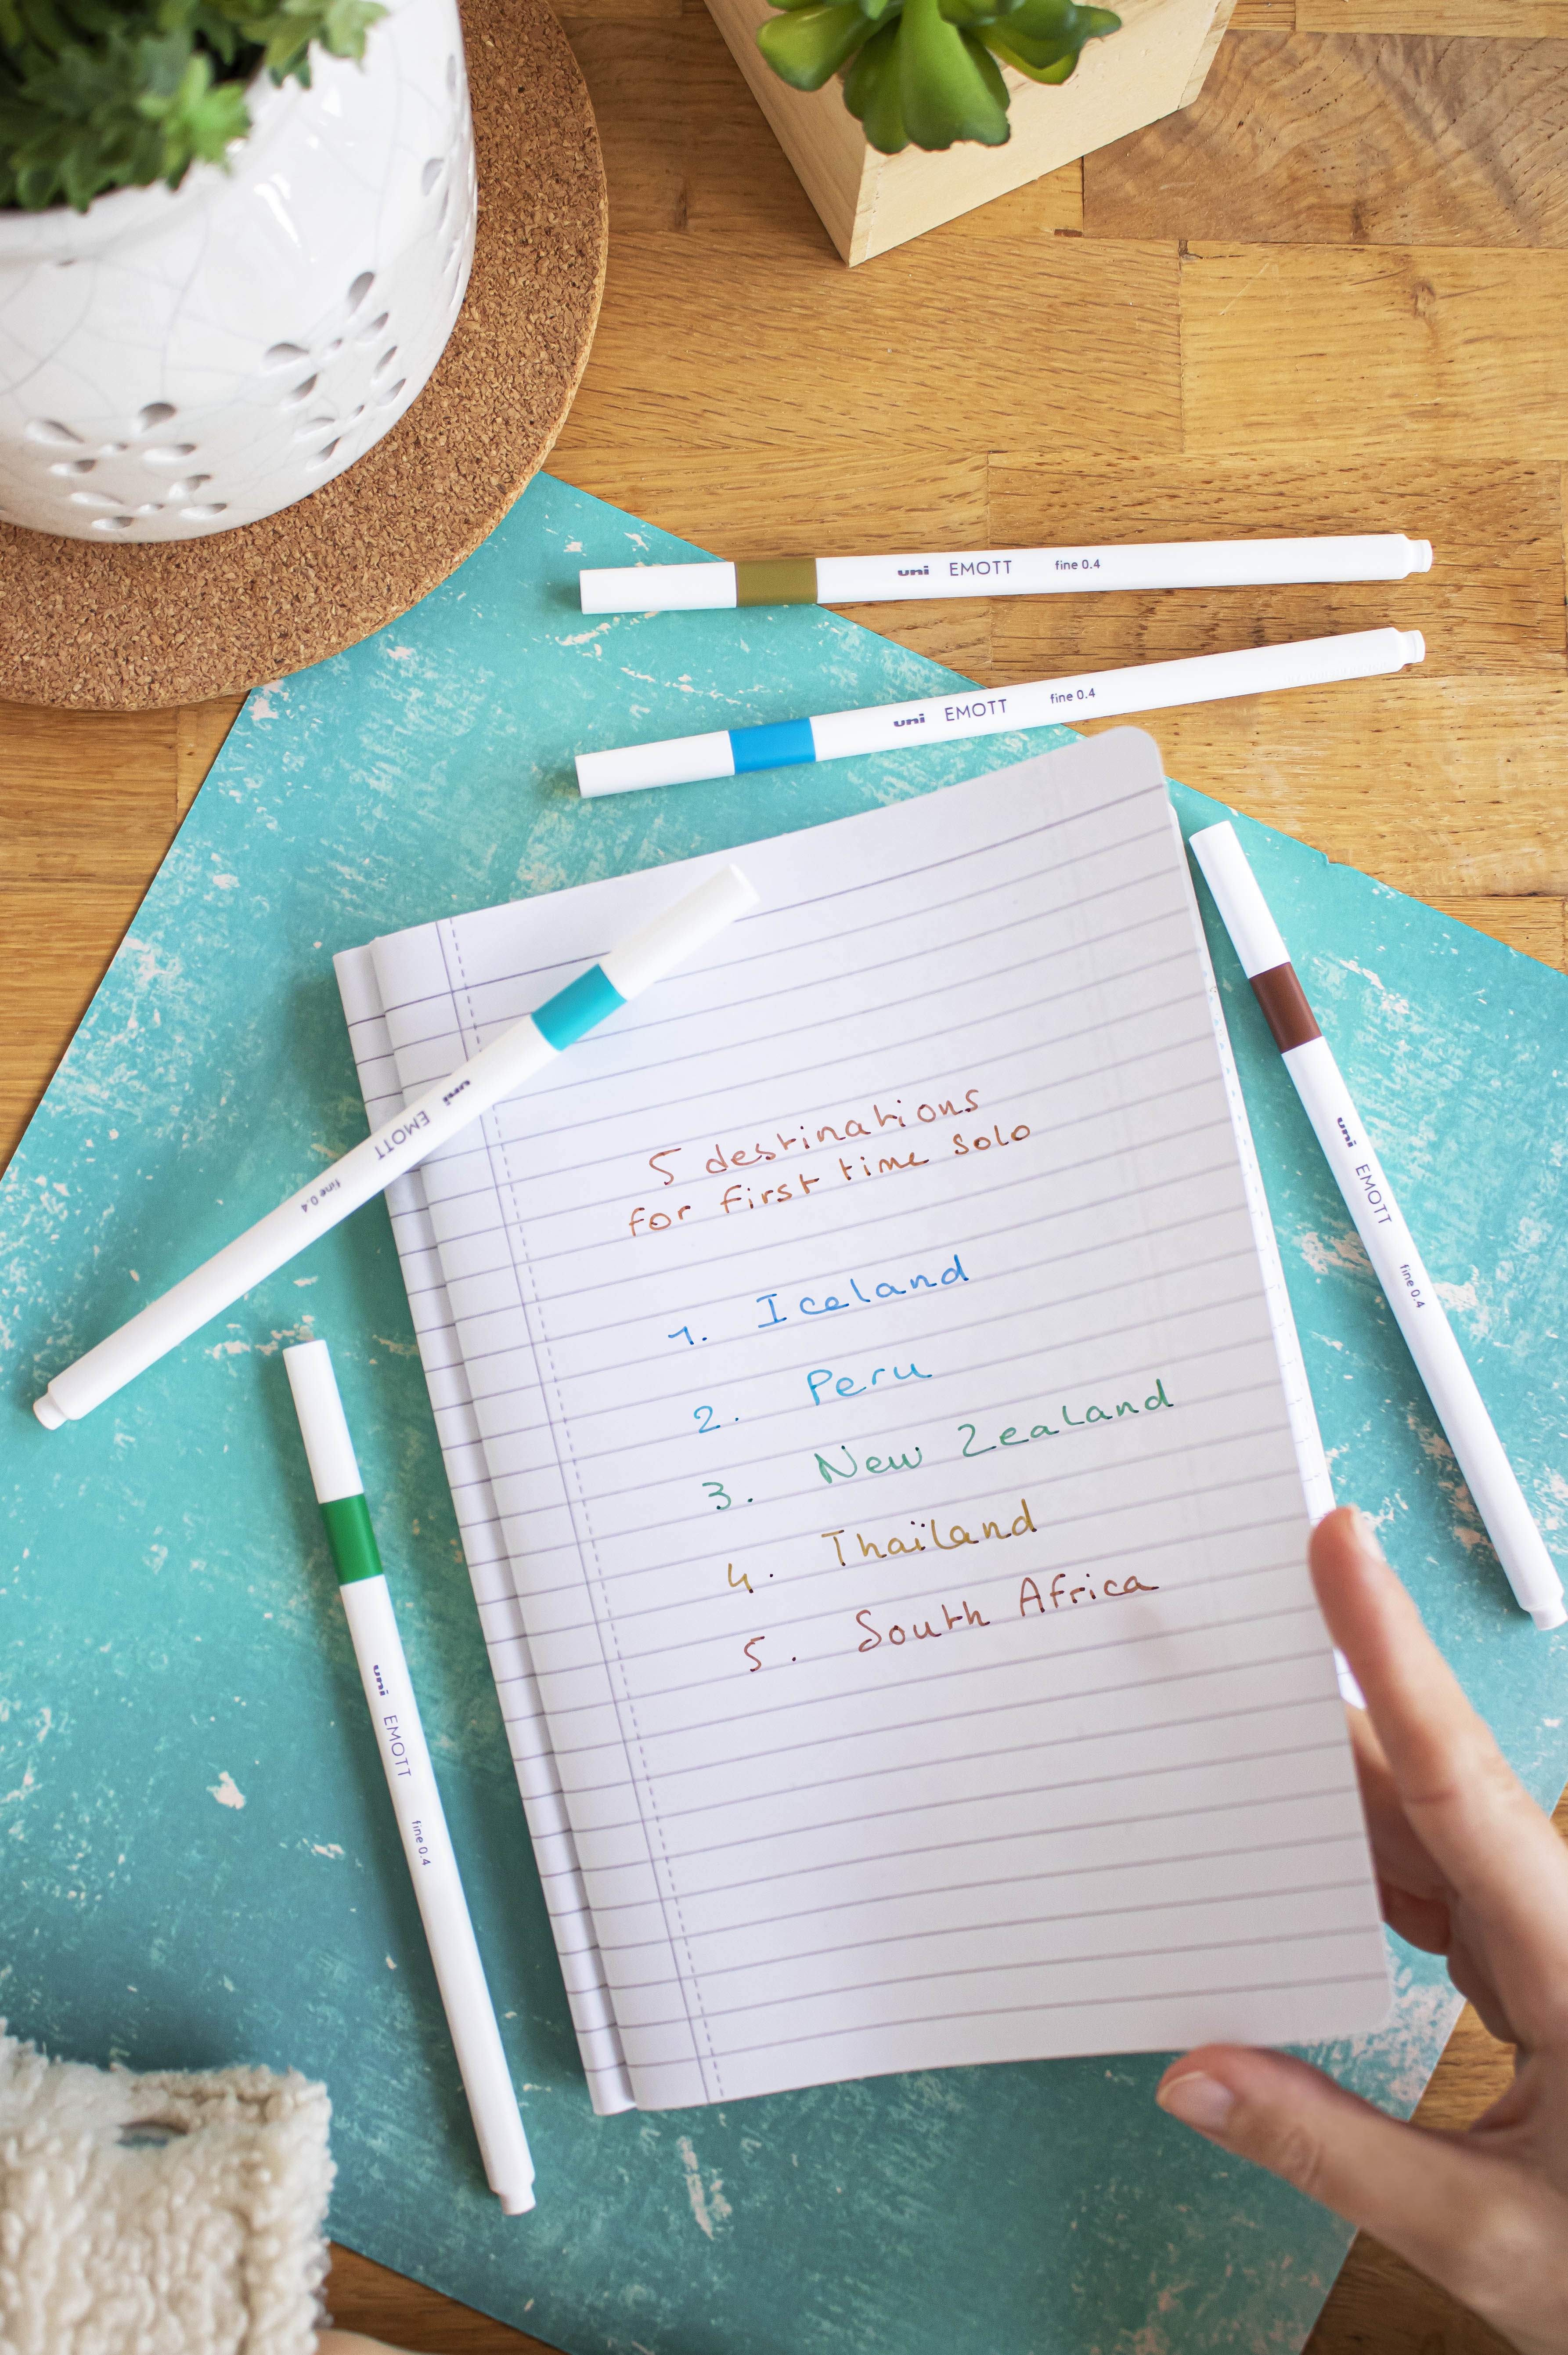 uni EMOTT fine 0.4
uni EMOTT fine 0.4
uni EMOTT fine 0.4
uni EMOTT fine 0.4
5 destinations
for first time solo
1. Iceland
2. Peru
3. New Zealand
4. Thaïland
5. South Africa
uni EMOTT fine 0.4